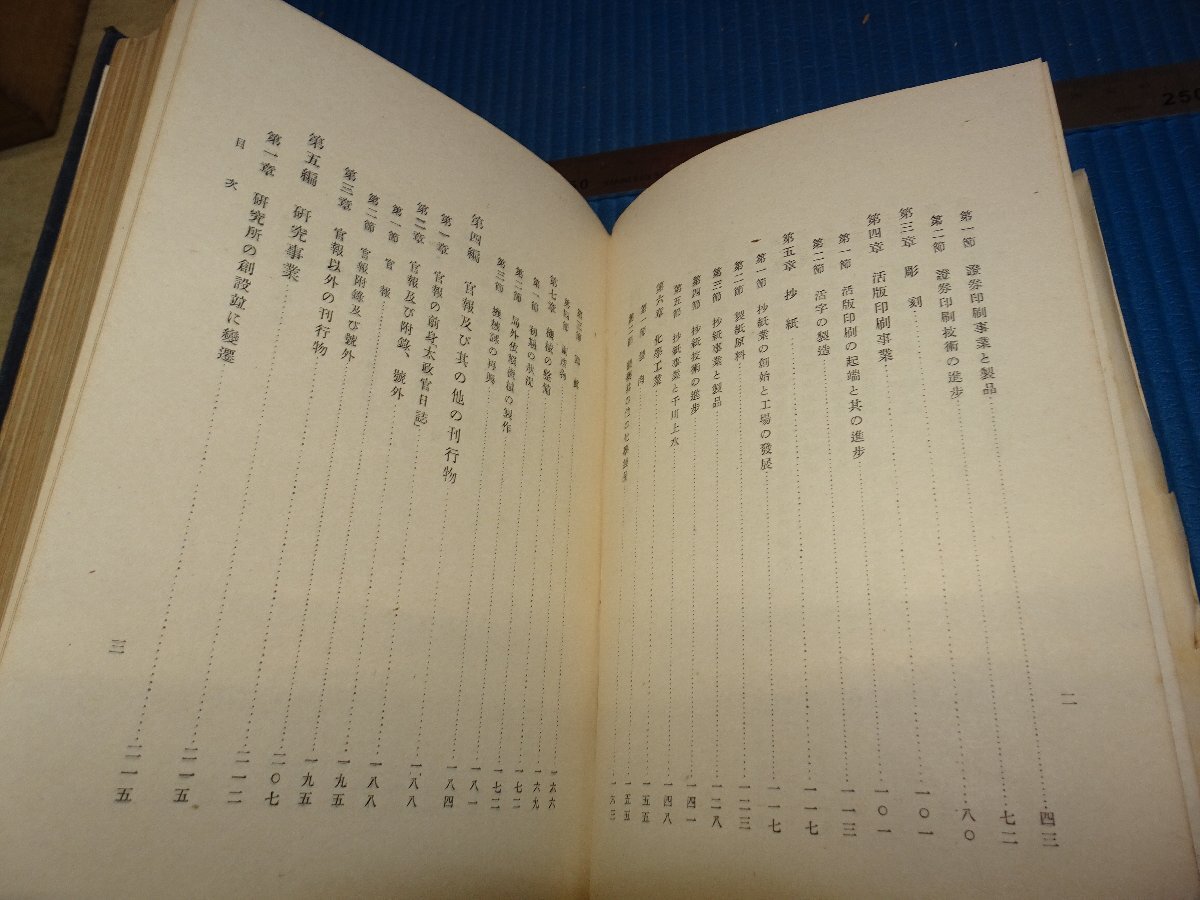 第一節 證券印刷事業と製品……四三
第二節 證券印刷技術の進步……七二
第三章 彫刻……八〇
第四章 活版印刷事業……一〇一
第一節 活版印刷の起端と其の進步……一〇一
第二節 活字の製造……一一三
第五章 抄紙……一一七
第一節 抄紙業の創始と工場の發展……一一七
第二節 製紙原料……一二三
第三節 抄紙事業と製品……一二八
第四節 抄紙技術の進步……一四一
第五節 抄紙事業と千川上水……一四八
第六章 化學工業……一五五
第一節 墨肉……一五五
第二節……一六三
二
第七章 機械の整備
第一節
第二節 局外依賴機械の製作
第三節
第四編 官報及び其の他の刊行物
第一章 官報の前身太政官日誌
第二章 官報及び附錄、號外……一八八
第一節 官報……一八八
第二節 官報附錄及び號外……一九五
第三章 官報以外の刊行物……二〇七
第五編 研究事業……二一五
第一章 研究所の創設竝に變遷……二一五
目次
三